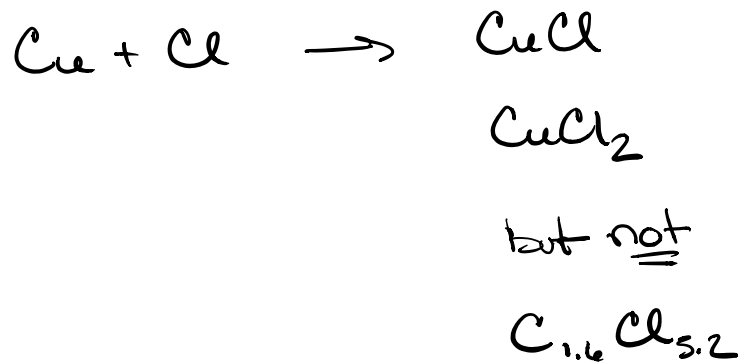 Cu + Cl → CuCl
CuCl₂
but not
C₁.₆Cl₅.₂